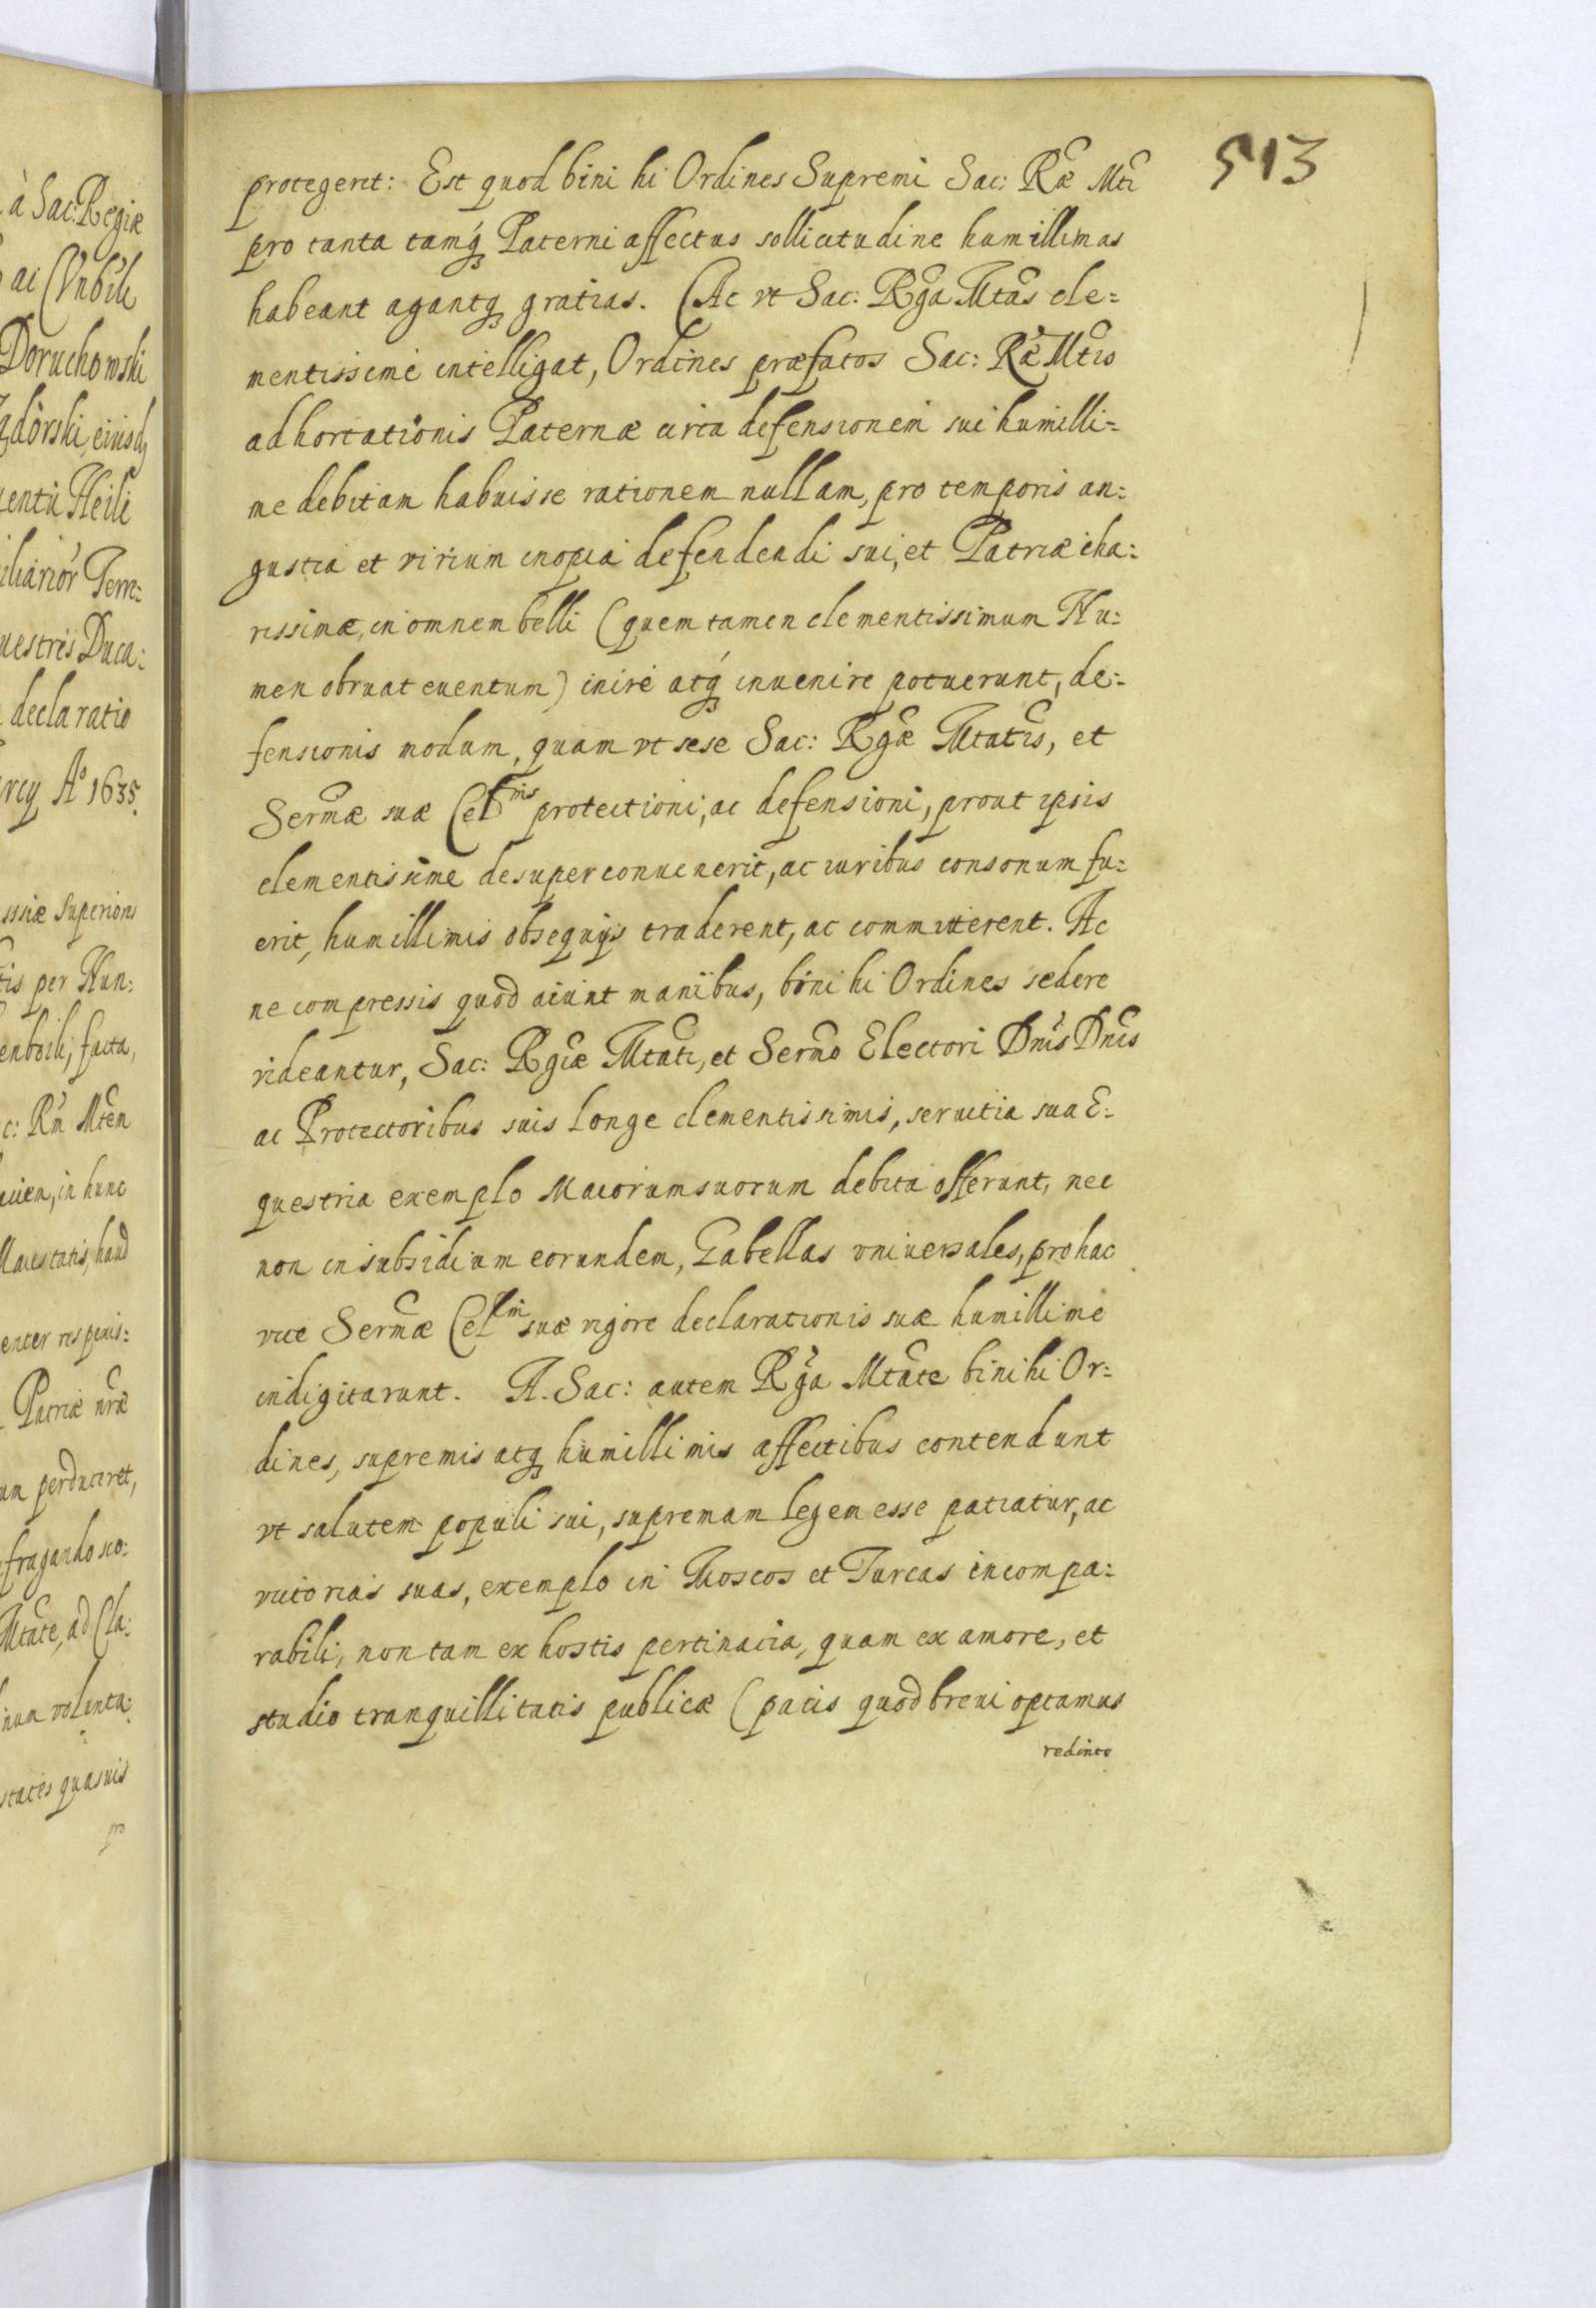 513
protegeret: Est quod bini hi Ordines Supremi Sac: Ræ Mti
pro tanta tamq́ Paterni affectus sollicitudine humillimas
habeant agantq gratias. Ac vt Sac: Rga Mtas cle=
mentissime intelligat, Ordines præfatos Sac: Ræ Mtis
adhortationis Paternæ circa defensionem sui humilli=
me debitam habuisse rationem nullam, pro temporis an=
gustia et virium inopia defendendi sui, et Patriæ cha=
rissimæ, in omnem belli (quem tamen clementissimum Nu=
men obruat euentum) inire atq́ inuenire potuerunt, de=
fensionis modum, quam vt sese Sac: Rgæ Mtatis, et
Sermæ suæ Celnis protectioni, ac defensioni, prout ipsis
clementissime desuper conuenerit, ac iuribus consonum fu=
erit, humillimis obsequijs traderent, ac committerent. Ac
ne compressis quod aiunt manibus, bini hi Ordines sedere
videantur, Sac: Rgiæ Mtati, et Sermo Electori Dnis Dnis
ac Protectoribus suis longe clementissimis, seruitia sua E=
questria exemplo Maiorum suorum debita offerunt, nec
non in subsidium eorundem, Gabellas vniuersales, pro hac
vice Sermæ Celni suæ vigore declarationis suæ humillime
indigitarunt. A. Sac: autem Rga Mtate bini hi Or=
dines, supremis atq humillimis affectibus contendunt
vt salutem populi sui, supremam legem esse patiatur, ac
victorias suas, exemplo in Moscos et Turcas incompa=
rabili, non tam ex hostis pertinacia, quam ex amore, et
studio tranquillitatis publicæ (pacis quod breui optamus
redinto
à Sac: Regiæ
Doruchowski
declaratio
Aº 1635.
ssiæ Superioris
tis per Nun:
facta,
c: Rm Mtem
in hunc
Maiestatis, haud
Patriæ nræ
um perduceret,
Mtate, ad Cla:
num volunta:
states quasuis
pro